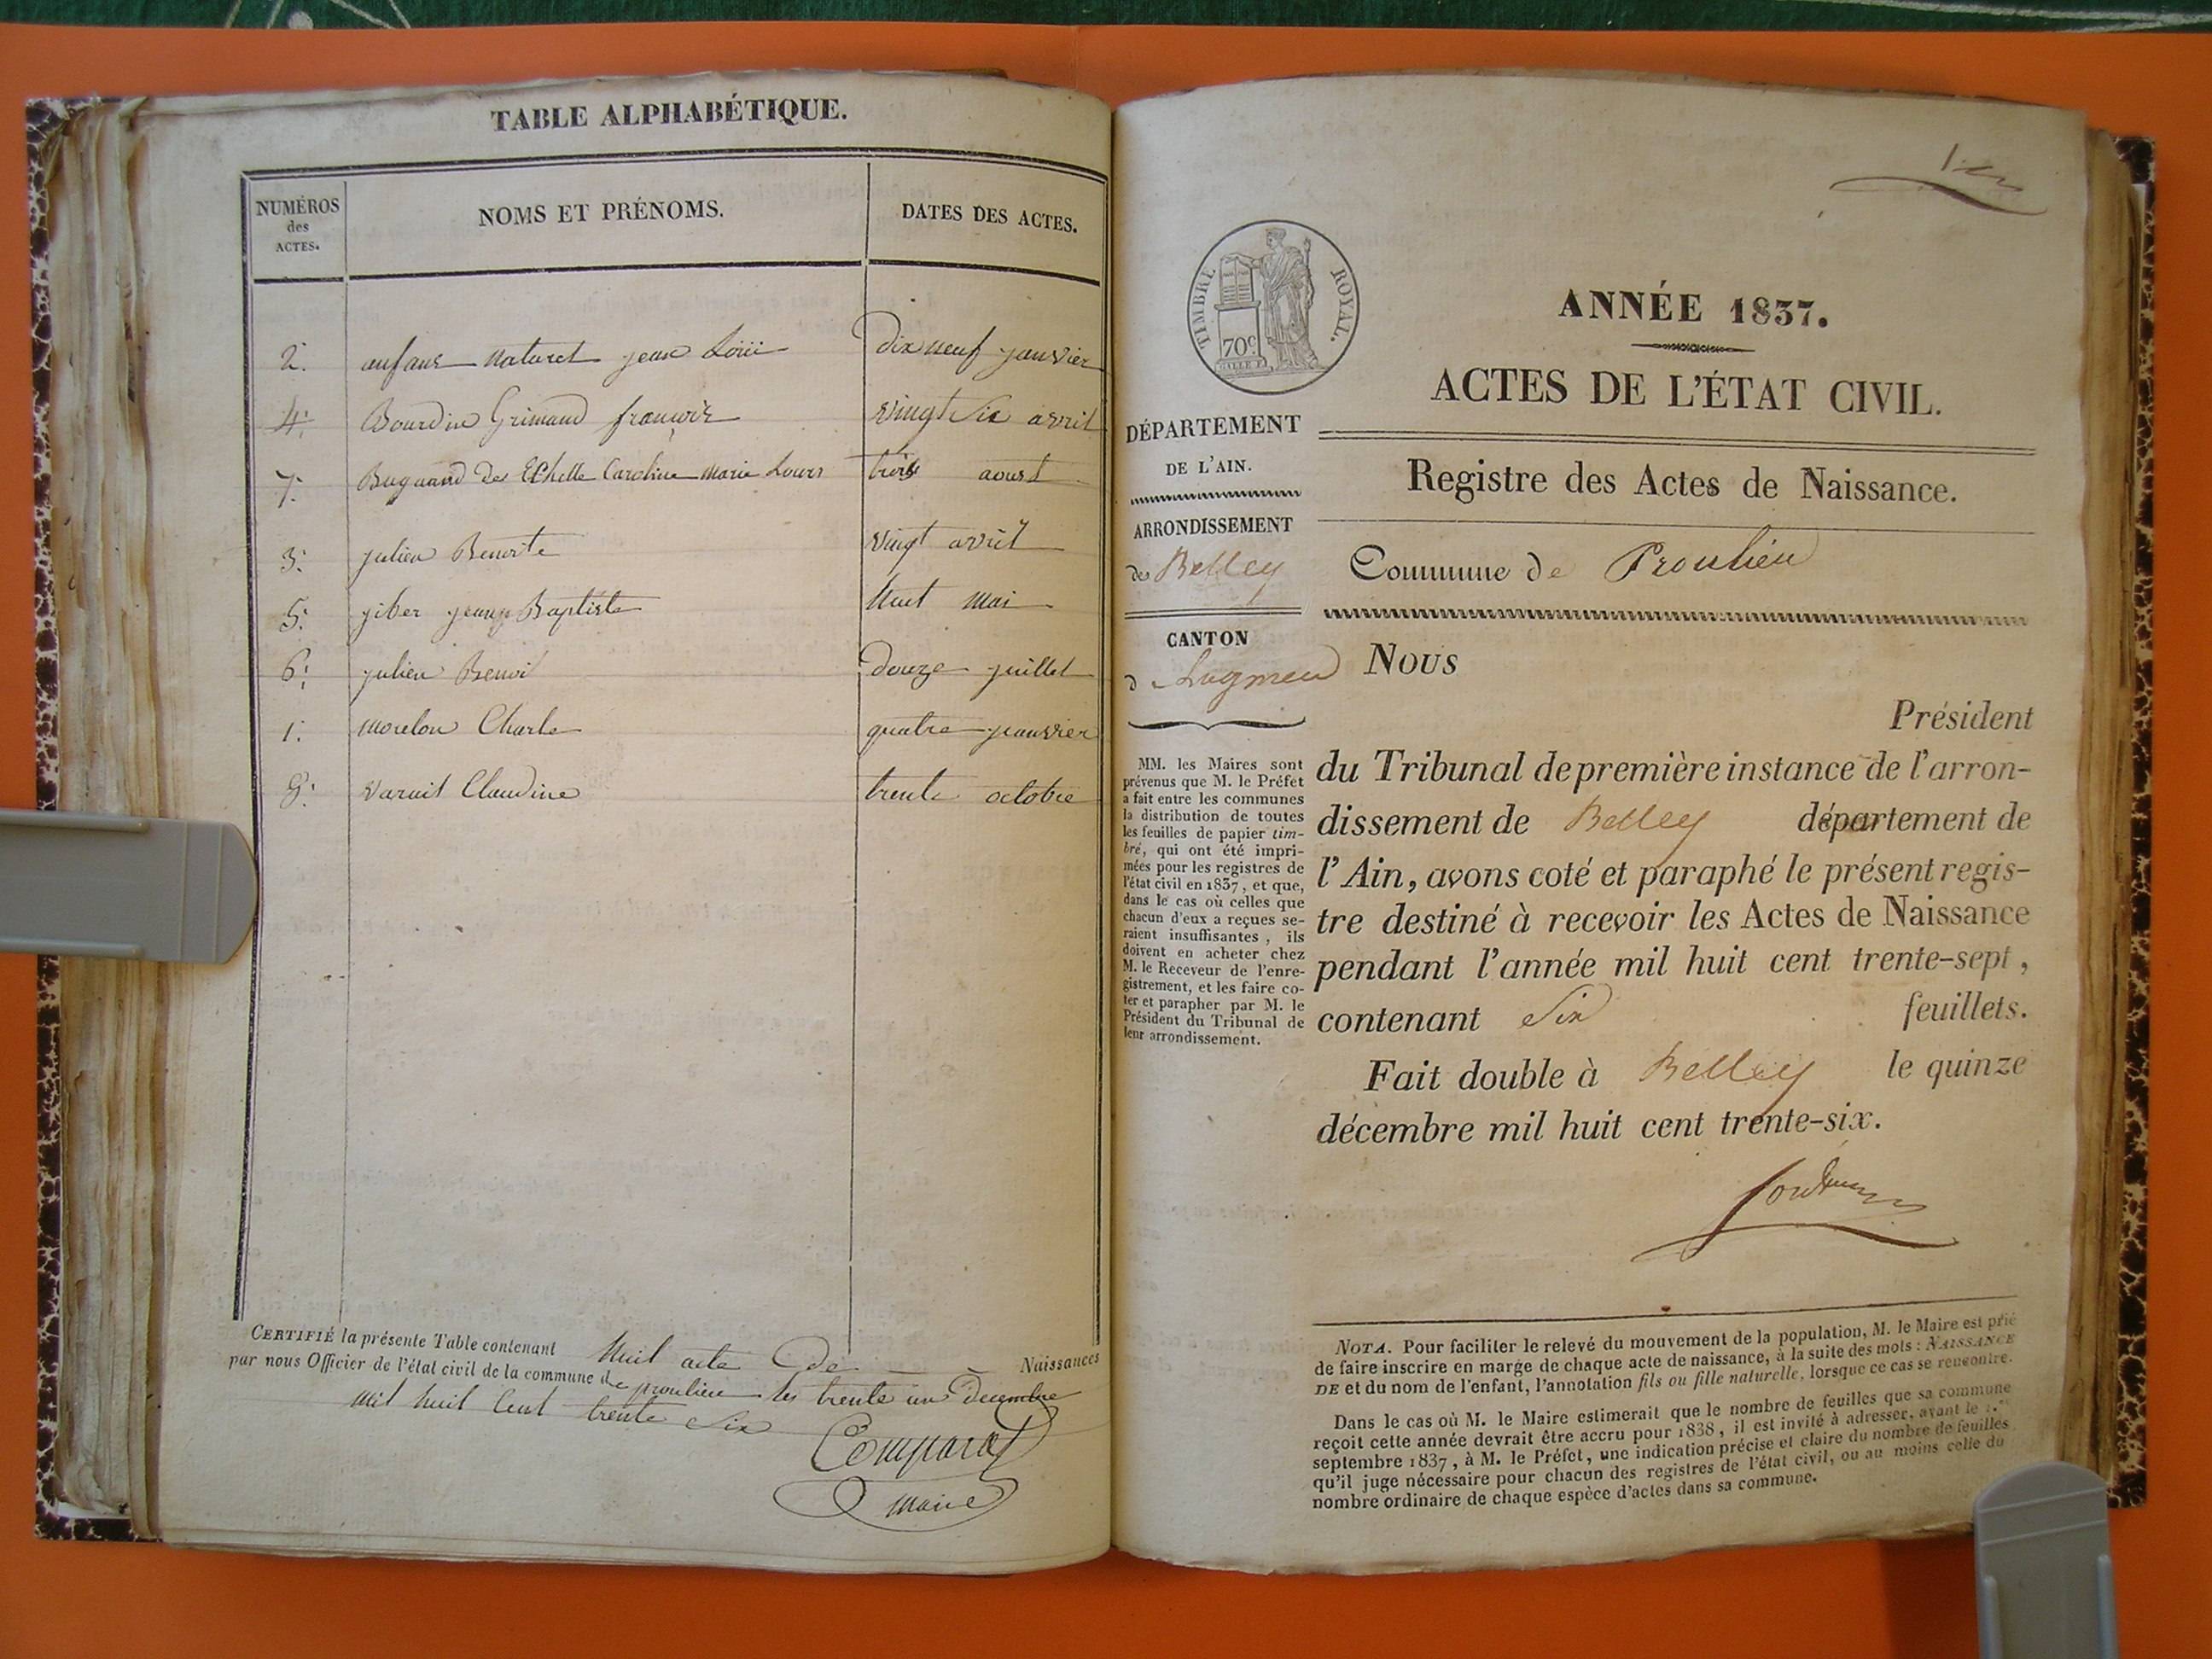 TABLE ALPHABÉTIQUE.
NUMÉROS
des
ACTES.
NOMS ET PRÉNOMS.
DATES DES ACTES.
2. enfant naturel jean Loüi dix neuf janvier
4. Bourdin Grimaud françois vingt Six avril
7. Bugnand des Echelle Caroline Marie Louis trois aoust
3. julien Benoite vingt avril
5. giber jeanp Baptiste huit Mai
6. julien Benoi douze juillet
1. Morelon Charle quatre janvier
8. Varuit Claudine trente octobre
CERTIFIÉ la présente Table contenant huit acte de Naissances
par nous Officier de l'état civil de la commune de proulieu les trente un Decembre
mil huit Cent trente Six
Comparat
Maire
1er
TIMBRE ROYAL.
70c
ANNÉE 1837.
ACTES DE L'ÉTAT CIVIL.
DÉPARTEMENT
DE L'AIN.
ARRONDISSEMENT
de Belley
CANTON
d Lagnieu
MM. les Maires sont
prévenus que M. le Préfet
a fait entre les communes
la distribution de toutes
les feuilles de papier tim-
bré, qui ont été impri-
mées pour les registres de
l'état civil en 1837, et que,
dans le cas où celles que
chacun d'eux a reçues se-
raient insuffisantes, ils
doivent en acheter chez
M. le Receveur de l'enre-
gistrement, et les faire co-
ter et parapher par M. le
Président du Tribunal de
leur arrondissement.
Registre des Actes de Naissance.
Commune de Proulieu
Nous
Président
du Tribunal de première instance de l'arron-
dissement de Belley département de
l'Ain, avons coté et paraphé le présent regis-
tre destiné à recevoir les Actes de Naissance
pendant l'année mil huit cent trente-sept,
contenant Six feuillets.
Fait double à Belley le quinze
décembre mil huit cent trente-six.
NOTA. Pour faciliter le relevé du mouvement de la population, M. le Maire est prié
de faire inscrire en marge de chaque acte de naissance, à la suite des mots : NAISSANCE
DE et du nom de l'enfant, l'annotation fils ou fille naturelle, lorsque ce cas se rencontre.
Dans le cas où M. le Maire estimerait que le nombre de feuilles que sa commune
reçoit cette année devrait être accru pour 1838, il est invité à adresser, avant le 1.er
septembre 1837, à M. le Préfet, une indication précise et claire du nombre de feuilles
qu'il juge nécessaire pour chacun des registres de l'état civil, ou au moins celle du
nombre ordinaire de chaque espèce d'actes dans sa commune.